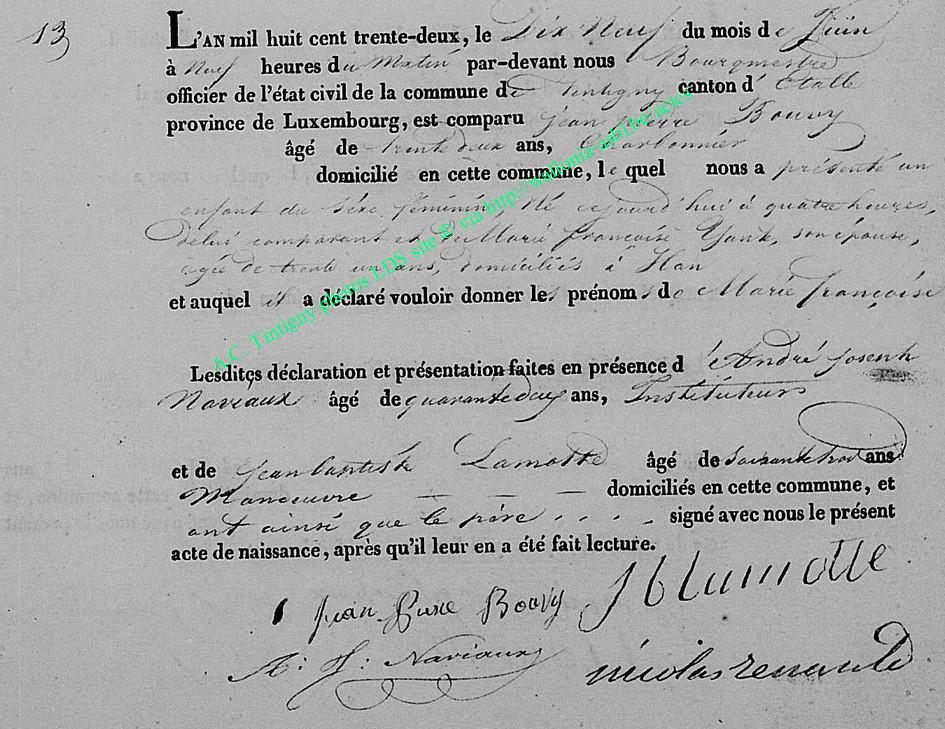 13
L'AN mil huit cent trente-deux, le Dix Neuf du mois de Juin
à Neuf heures du Matin par-devant nous Bourgmestre
officier de l'état civil de la commune de Tintigny canton d' Etalle
province de Luxembourg, est comparu Jean pierre Bouvy
âgé de trente deux ans, Charbonnier
domicilié en cette commune, le quel nous a présenté un
enfant du Séxe féminin, Né cejourd'hui à quatre heures,
Delui comparant et de Marie françoise Yank, son épouse,
agée de trente un ans, domiciliés à Han
et auquel il a déclaré vouloir donner les prénoms de Marie françoise
Lesdites déclaration et présentation faites en présence d' André Joseph
Naviaux âgé de quarante deux ans, Instituteur
et de Jean baptiste Lamotte âgé de Soixante trois ans
Manoeuvre - - - domiciliés en cette commune, et
ont ainsi que le père . . . . signé avec nous le présent
acte de naissance, après qu'il leur en a été fait lecture.
Jean Piere Bouvy JBLamotte
A: J: Naviaux nicolas renauld
A.C. Tintigny photos LDS site & via http://wallonia-asbl.be/actes